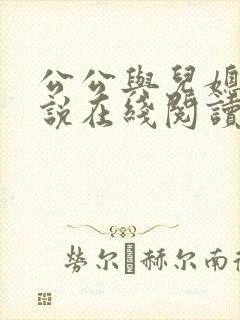 公公與兒媳
説在綫閱讀
勞尔 赫尔南